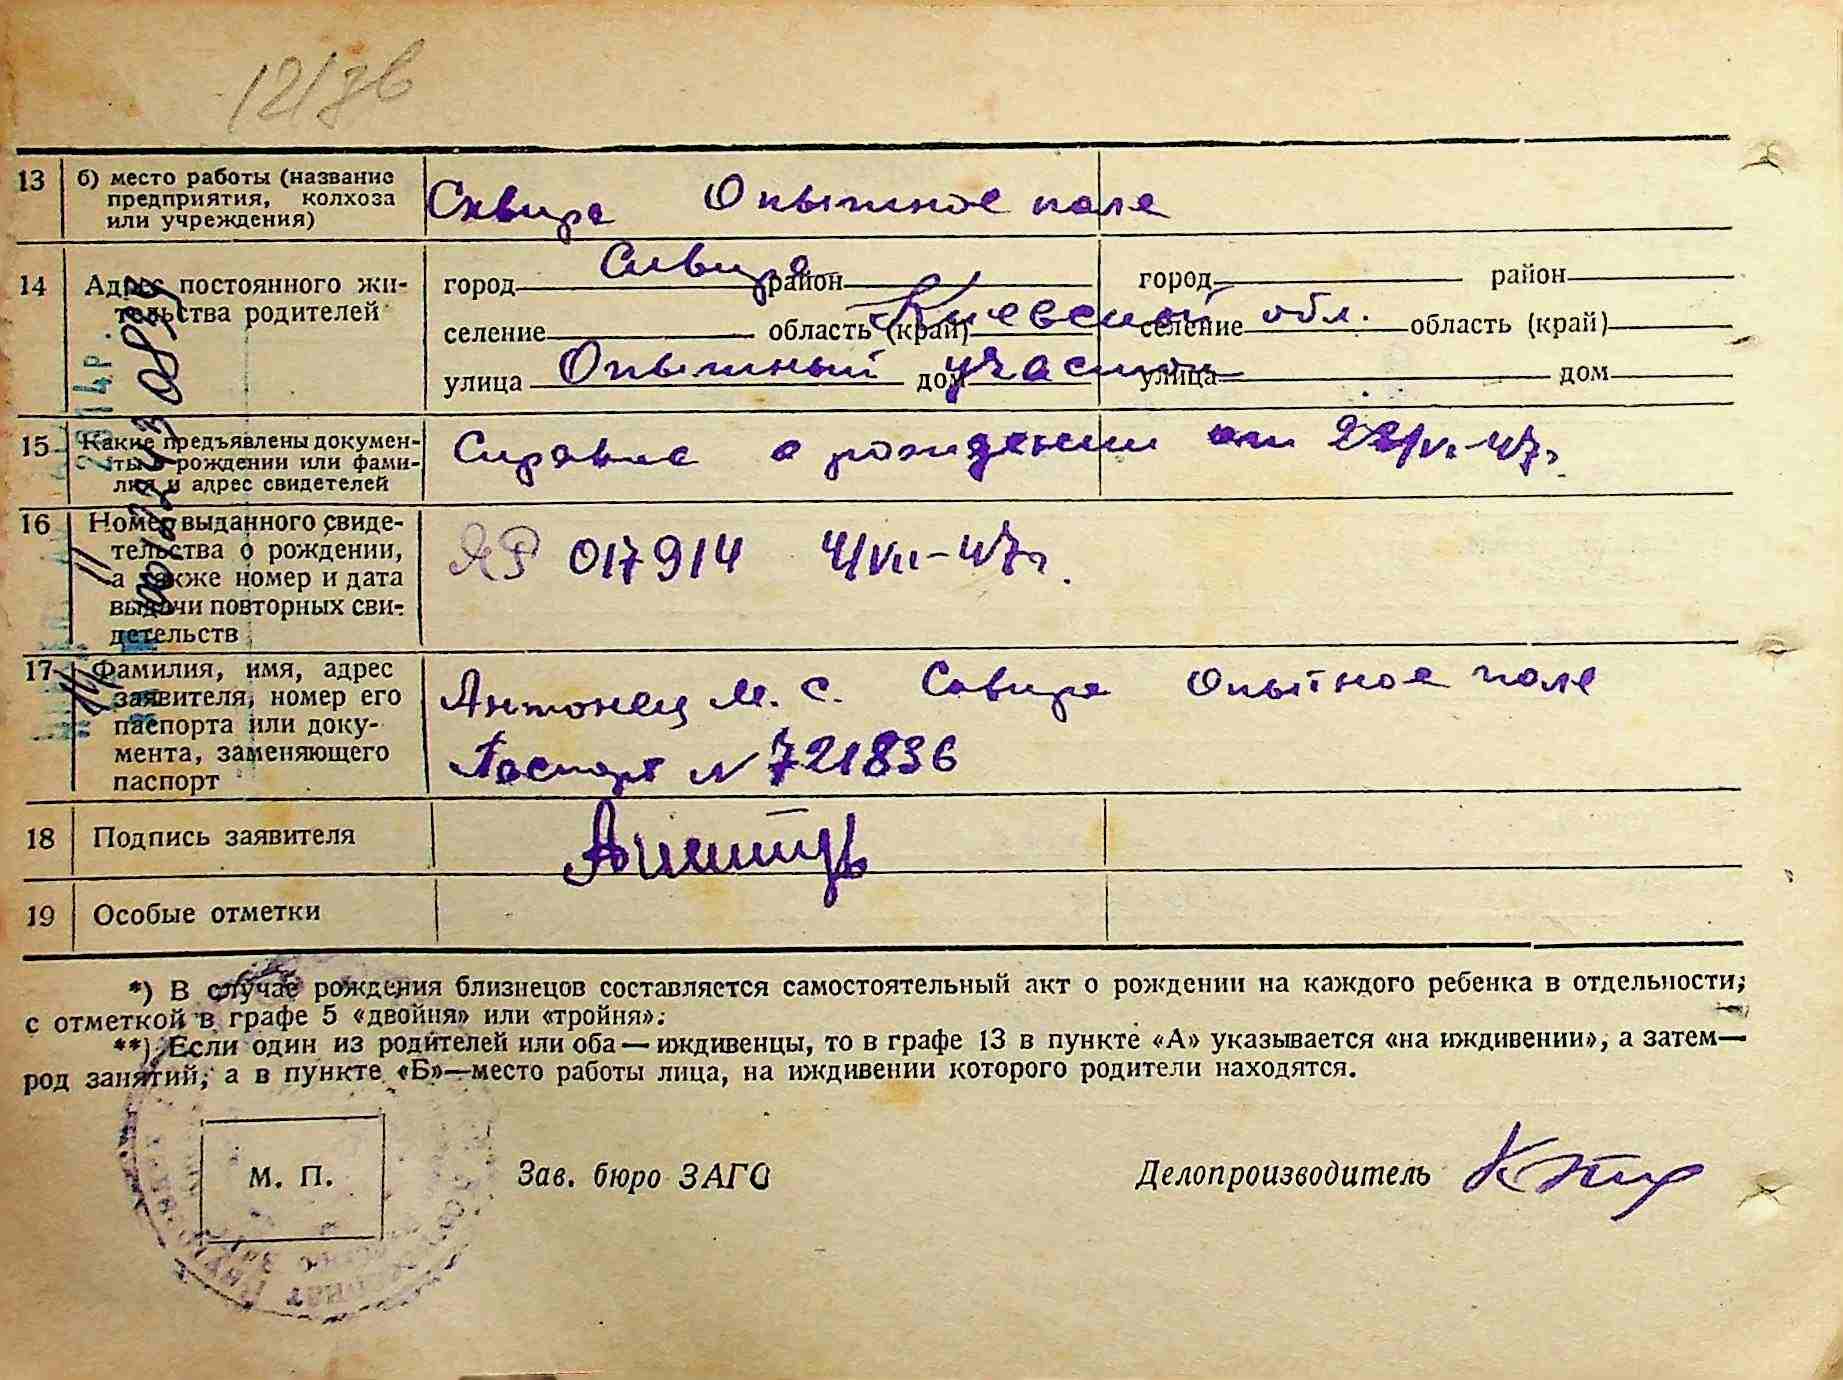 12/зв
13 б) место работы (название предприятия, колхоза или учреждения) Сквира Опытное поле
14 Адрес постоянного жительства родителей
город Сквира район город район
селение область (край) Киевской обл. селение область (край)
улица Опытный участок дом улица дом
15 Какие предъявлены документы о рождении или фамилия и адрес свидетелей Справка о рождении от 22/VI-47г.
16 Номер выданного свидетельства о рождении, а также номер и дата выдачи повторных свидетельств ЯР 017914 4/VII-47г.
17 Фамилия, имя, адрес заявителя, номер его паспорта или документа, заменяющего паспорт Антонец М. С. Сквира Опытное поле
Паспорт N 721836
18 Подпись заявителя
19 Особые отметки
*) В случае рождения близнецов составляется самостоятельный акт о рождении на каждого ребенка в отдельности,
с отметкой в графе 5 «двойня» или «тройня».
**) Если один из родителей или оба — иждивенцы, то в графе 13 в пункте «А» указывается «на иждивении», а затем—
род занятий, а в пункте «Б»—место работы лица, на иждивении которого родители находятся.
М. П. Зав. бюро ЗАГС Делопроизводитель